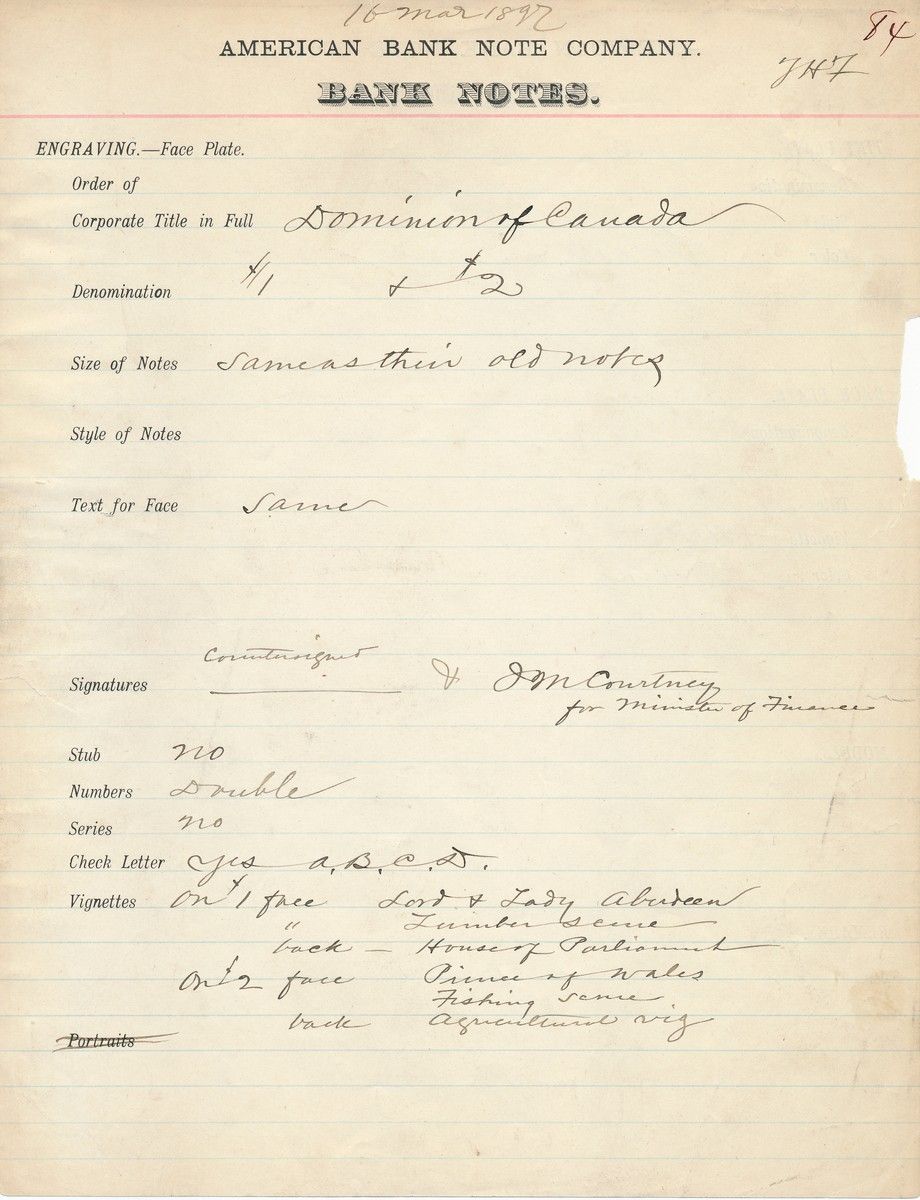 16 Mar 1897
84
AMERICAN BANK NOTE COMPANY.
JHF
BANK NOTES.
ENGRAVING.—Face Plate.
Order of
Corporate Title in Full Dominion of Canada
Denomination $1 & $2
Size of Notes Same as their old notes
Style of Notes
Text for Face Same
Signatures Countersigned & J M Courtney
for Minister of Finance
Stub no
Numbers Double
Series no
Check Letter Yes A. B. C. D.
Vignettes On $1 face Lord & Lady Aberdeen
" Lumber scene
back — House of Parliament
On $2 face Prince of Wales
Fishing scene
back Agricultural vig
Portraits